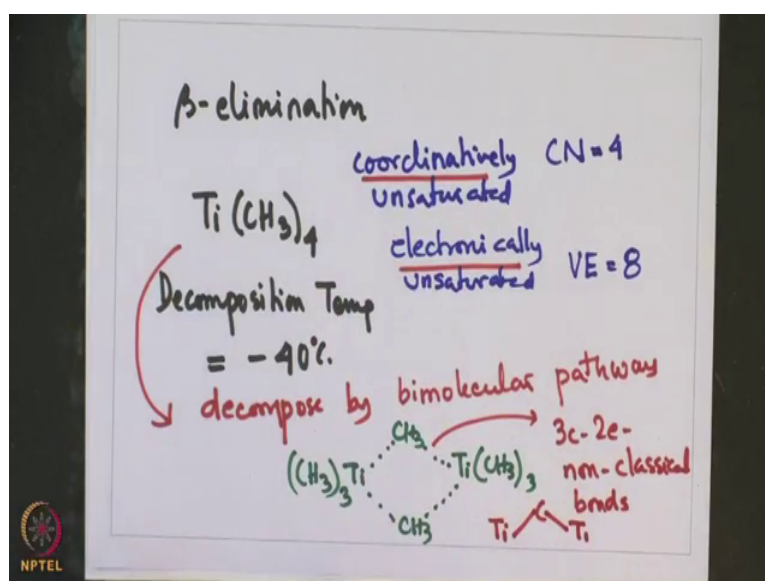 β-elimination
coordinatively CN = 4
unsaturated
Ti(CH3)4
electronically
unsaturated VE = 8
Decomposition Temp
= -40°C.
decompose by bimolecular pathways
CH3
(CH3)3Ti Ti(CH3)3
CH3
3c-2e-
non-classical
bonds
Ti C Ti
NPTEL